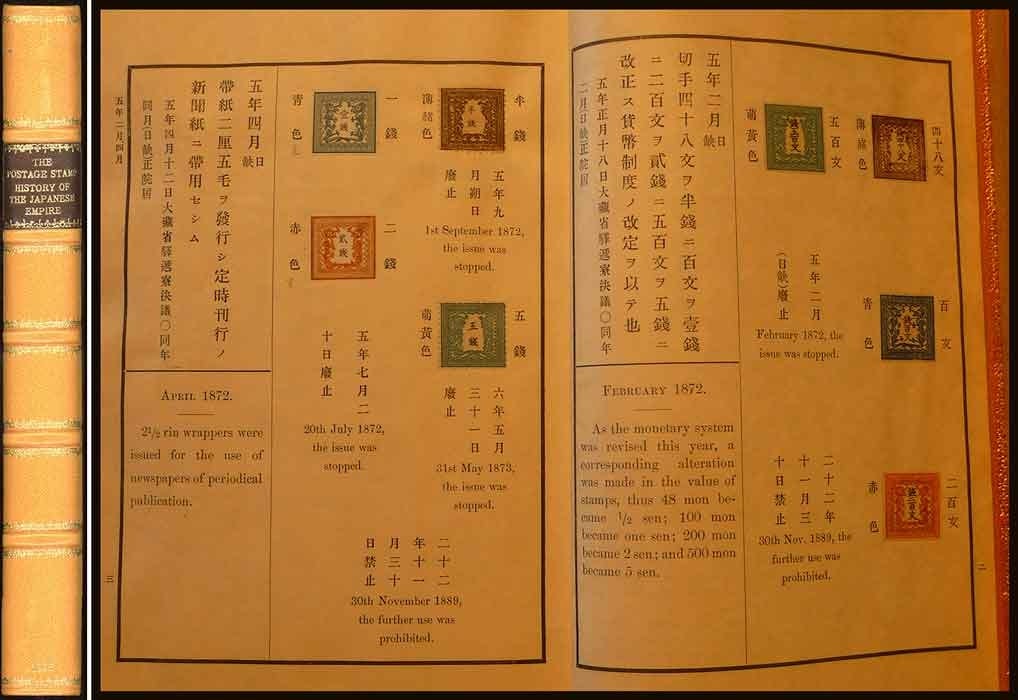 THE
POSTAGE STAMP
HISTORY OF
THE JAPANESE
EMPIRE
四十八文
薄赭色
百文
青色
二百文
赤色
五百文
萌黃色
五年二月
(日缺)廢止
February 1872, the
issue was stopped.
二十二年
十一月三
十日禁止
30th Nov. 1889, the
further use was
prohibited.
五年二月日缺
切手四十八文ヲ半錢ニ百文ヲ壹錢
ニ二百文ヲ貳錢ニ五百文ヲ五錢ニ
改正ス貨幣制度ノ改定ヲ以テ也
五年正月十八日大藏省驛遞寮決議〇同年
二月日缺正院屆
FEBRUARY 1872.
As the monetary system
was revised this year, a
corresponding alteration
was made in the value of
stamps, thus 48 mon be-
came 1/2 sen; 100 mon
became one sen; 200 mon
became 2 sen; and 500 mon
became 5 sen.
二
半錢
薄赭色
半錢
五年九
月朔日
廢止
1st September 1872,
the issue was
stopped.
五錢
萌黃色
五錢
六年五月
三十一日
廢止
31st May 1873,
the issue was
stopped.
一錢
青色
壹錢
二錢
赤色
貳錢
五年七月二
十日廢止
20th July 1872,
the issue was
stopped.
二十二
年十一
月三十
日禁止
30th November 1889,
the further use was
prohibited.
五年四月日缺
帶紙二厘五毛ヲ發行シ定時刊行ノ
新聞紙ニ帶用セシム
五年四月十二日大藏省驛遞寮決議〇同年
同月日缺正院屆
APRIL 1872.
2 1/2 rin wrappers were
issued for the use of
newspapers of periodical
publication.
五年二月四月
三